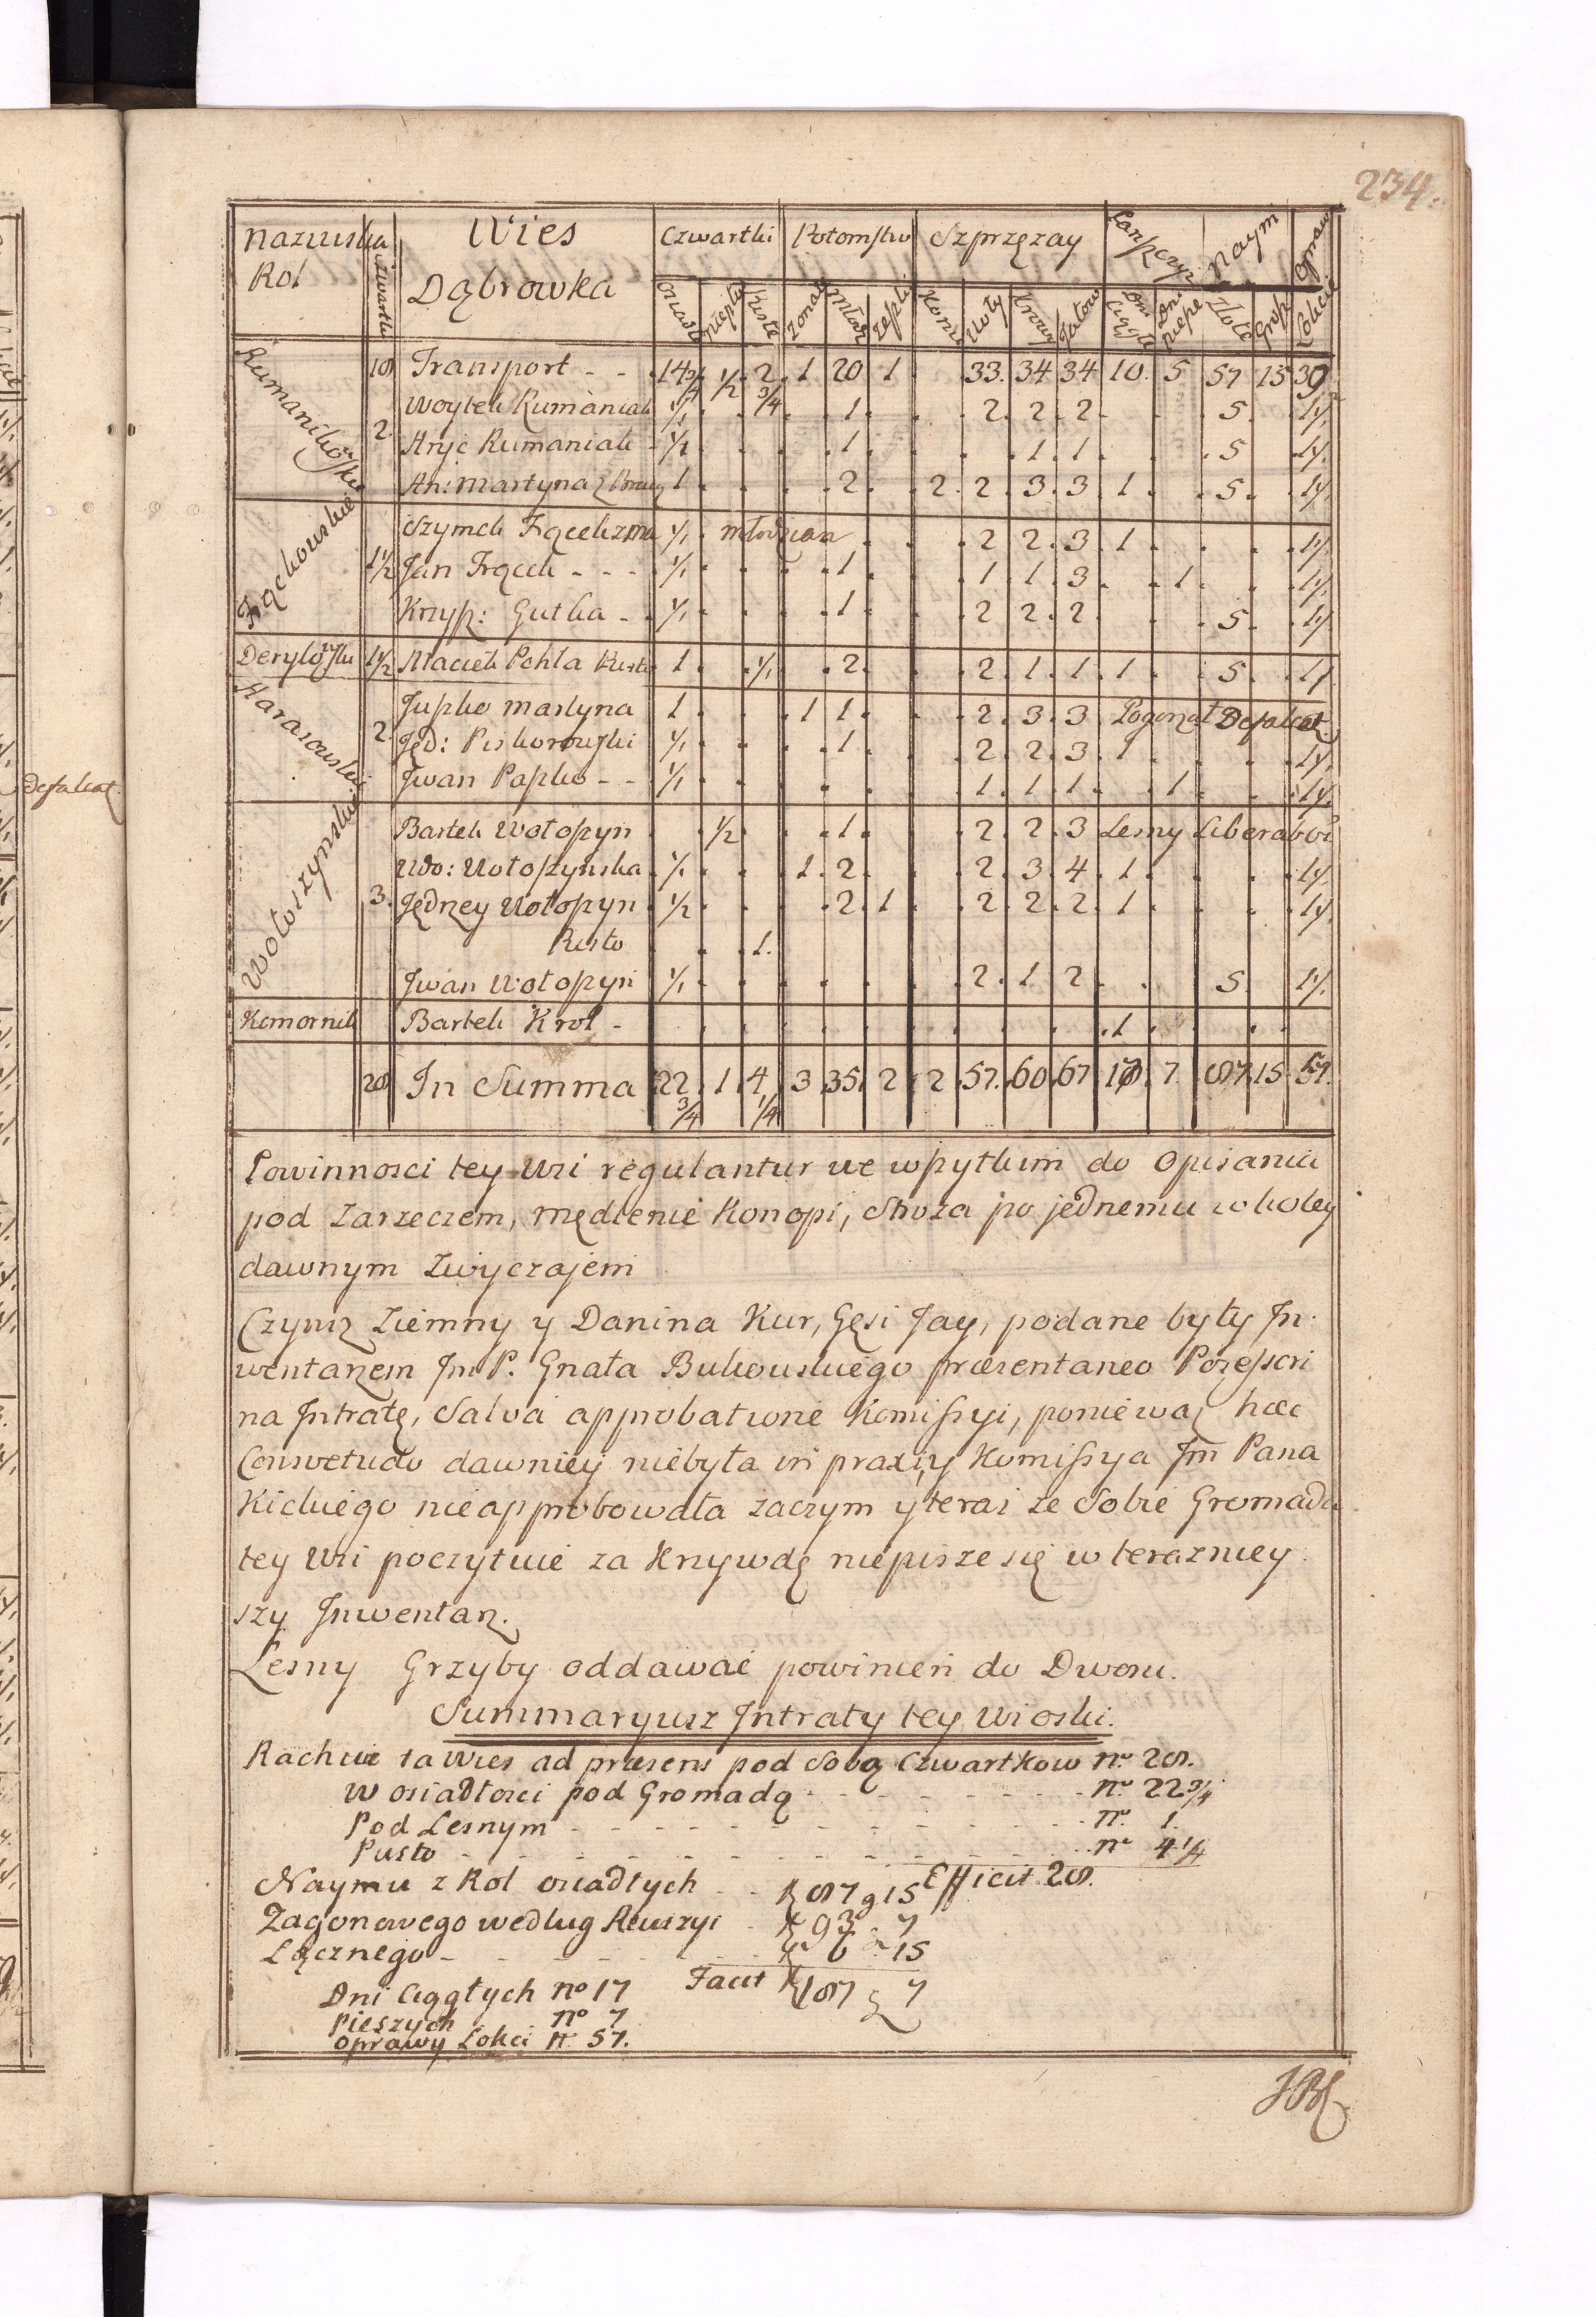 234.
Nazwiska Rol Czwartki Wies Dąbrowka Czwartki Potomstwo Szprzęzay Naym
18 Transport - - 14 3/4 1/2 2 3/4 1 20 1 33. 34 34 10. 5 57 15 39
Woytek Rumaniak 1/1 1 2 2 2 5 1/1
2. Rumaniak 1/2 1 1 1 5 1/1
An: Martyna 1 2 2 2 3 3 1 5 1/1
Frąckowskie
Szymek 1/1 młodzian 2 2 3 1 1/1
1 1/2 Jan Frącek - - - 1/1 1 1 1 3 1 1/1
Krzysz: Gutka - 1/1 1 2 2 2 5 1/1
1 1/2 Maciek Pchła 1 1/1 2 2 1 1 1 5 1/1
Harasowskie
Jusko Martyna 1 1 1 2 3 3 Pogorzał Defalcat.
2. Jęd: Piskorowski 1/1 1 2 2 3 1 1/1
Jwan Papko - - 1/1 1 1 1 1 1/1
Wołoszynskie
Bartek Wołoszyn 1/2 1 2 2 3 Lesny
Wdo: Wołoszynska 1/1 1 2 2 3 4 1 1/1
3. Jędrzey Wołoszyn 1/2 2 1 2 2 2 1 1/1
Pusto 1.
Jwan Wołoszyn 1/1 2 1 2 5 1/1
Komornik Bartek Krol - 1
28 In Summa 22 3/4 1 4 1/4 3 35 2 2 57. 60 67 7. 87 15 57.
Powinnosci tey Wsi regulantur we wszytkim do Opisania
pod Zarzeczem, Mędlenie Konopi, Stroza po jednemu w koley
dawnym Zwyczajem
Czynsz Ziemny y Danina Kur, Gęsi Jay, podane były In:
wentarzem Jm P. Gnata Bukowskiego praesentaneo Possessori
na Jntratę, Salva approbatione Komissyi, poniewaz haec
Consvetudo dawniey niebyła in praxi, y Komissya Jm Pana
Kickiego nieapprobowała zaczym y teraz ze Sobie Gromada
tey Wsi poczytuie za Krzywdę niepisze się w terazniey:
szy Jnwentarz.
Lesny Grzyby oddawać powinien do Dworu.
Summaryusz Jntraty tey Wioski.
Rachuie ta Wies ad praesens pod Sobą Czwartkow No 28.
W osiadłosci pod Gromadą - - - No 22 3/4
Pod Lesnym - - - No 1.
Pusto - - - No 4 1/4
Efficit. 28.
Naymu z Rol osiadłych - - 87 g 15
Zagonowego według Rewizyi - 93 - 7
Łącznego - - - 6 - 15
Facit 187 7
Dni Ciągłych No 17
Pieszych No 7
Oprawy Łokci No 57.
Defalcat.